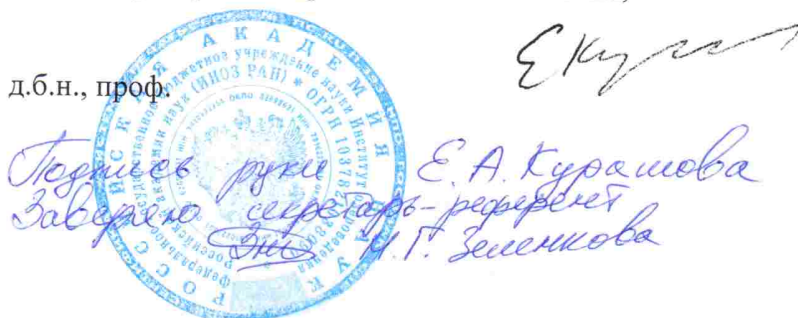 д.б.н., проф.
Подпись руки Е.А. Курашова
Заверяю секретарь-референт
М.Г. Зеленкова
РОССИЙСКАЯ АКАДЕМИЯ НАУК
Федеральное государственное бюджетное учреждение науки Институт озероведения
Российской академии наук (ИНОЗ РАН) * ОГРН